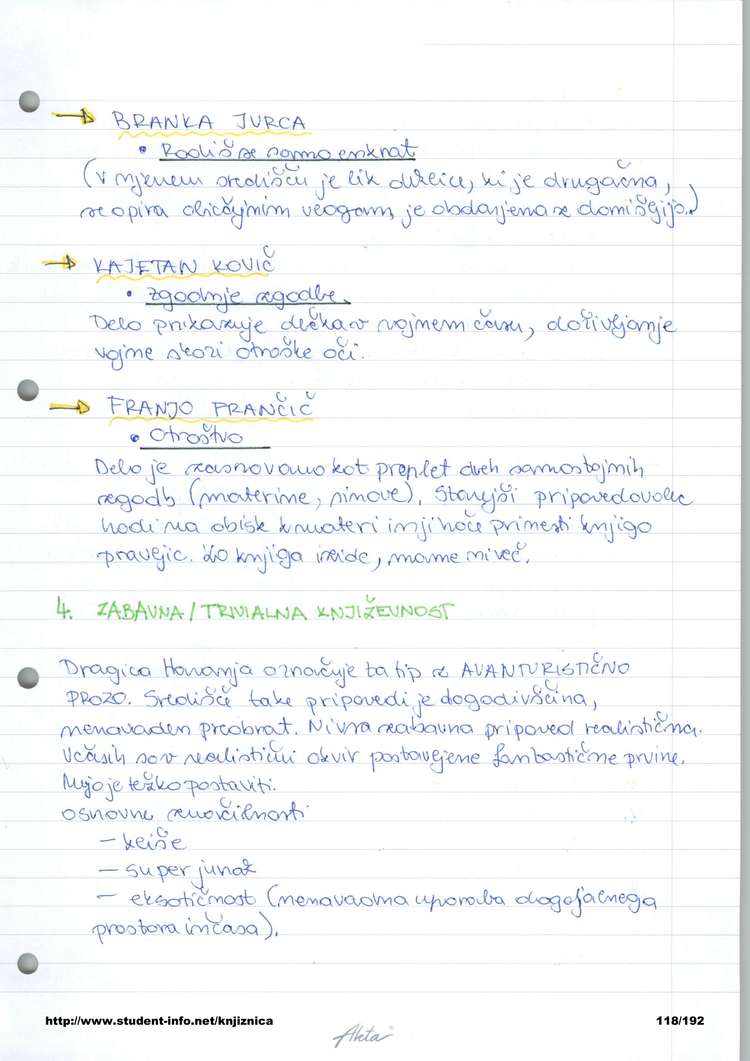 → BRANKA JURCA
• Rodiš se samo enkrat
(v njenem središču je lik deklice, ki je drugačna,
se upira običajnim vlogam, je obdarjena z domišljijo.)
→ KAJETAN KOVIČ
• zgodnje zgodbe.
Delo prikazuje dečka v vojnem času, doživljanje
vojne skozi otroške oči.
→ FRANJO FRANČIČ
• Otroštvo
Delo je zasnovano kot preplet dveh samostojnih
zgodb (materine, sinove). Starejši pripovedovalec
hodi na obisk k materi in ji hoče prinesti knjigo
pravljic. Ko knjiga izide, mame ni več.
4. ZABAVNA / TRIVIALNA KNJIŽEVNOST
Dragica Haramija označuje ta tip z AVANTURISTIČNO
PROZO. Središče take pripovedi je dogodivščina,
nenavaden preobrat. Ni vsa zabavna pripoved realistična.
Včasih so v realistični okvir postavljene fantastične prvine.
Mejo je težko postaviti.
Osnovne značilnosti
– kliše
– super junak
– eksotičnost (nenavadna uporaba dogajalnega
prostora in časa).
http://www.student-info.net/knjiznica 118/192
Akta